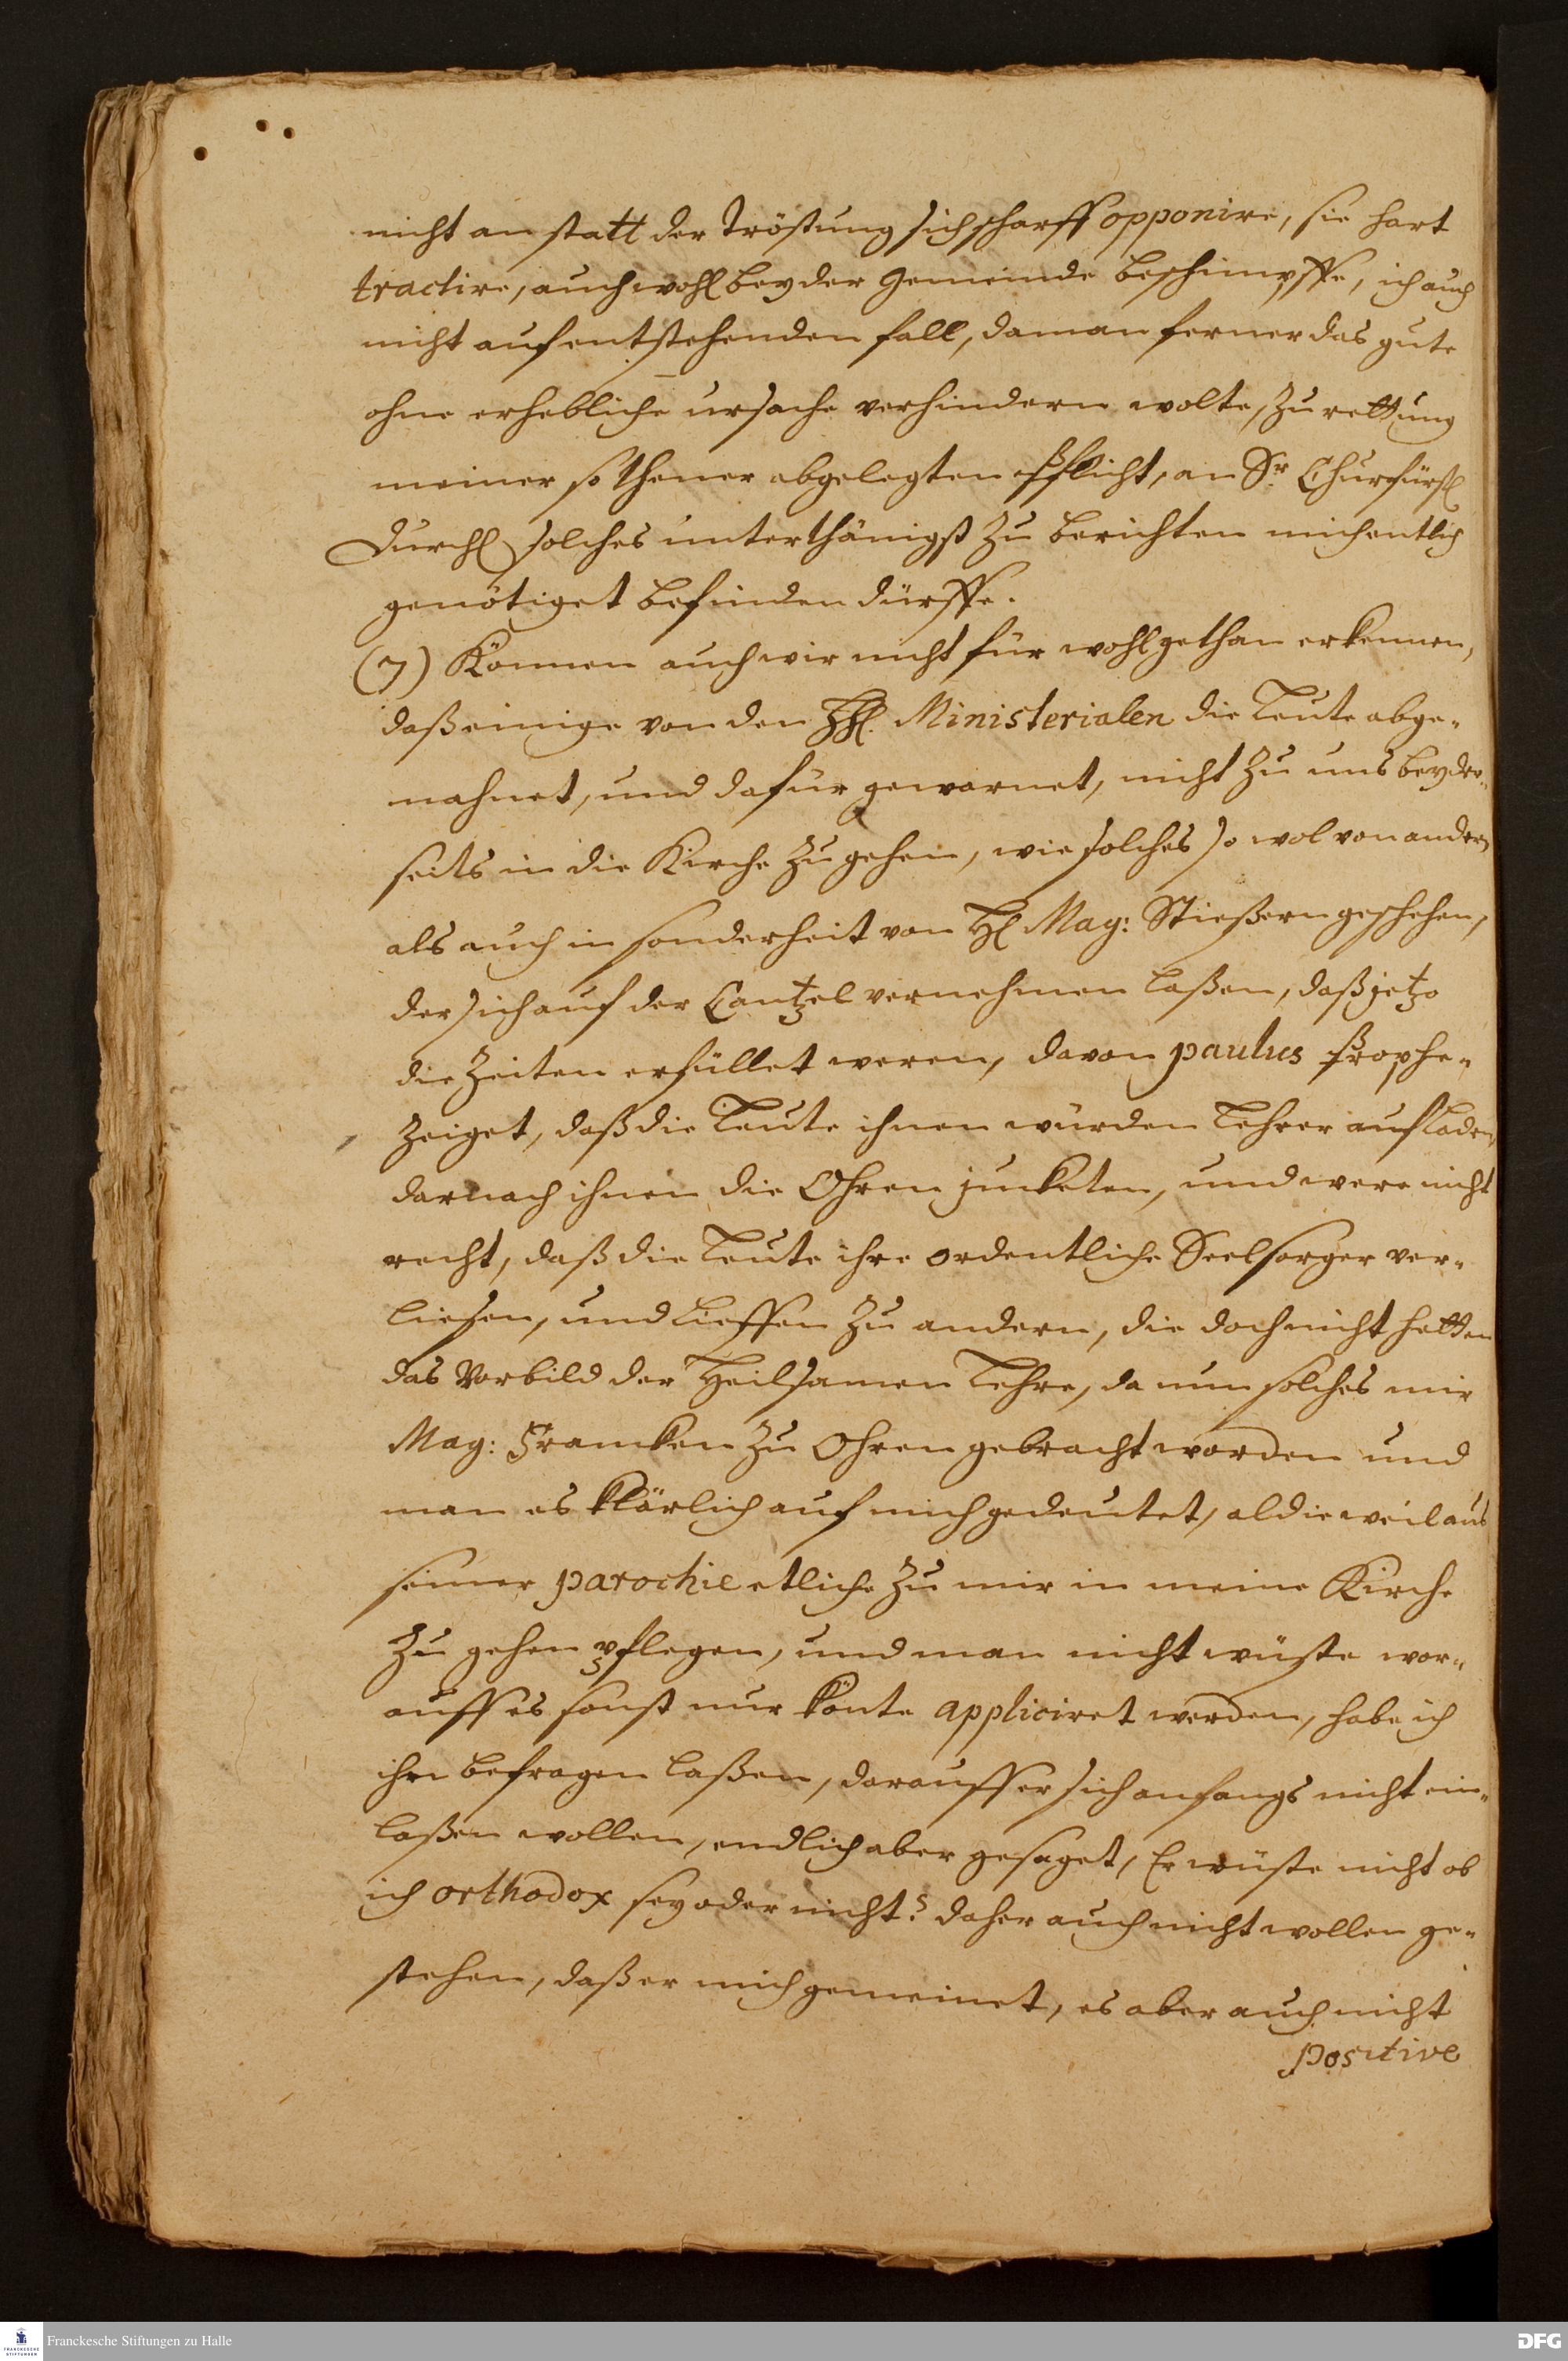 nicht an statt der Tröstung sich scharff opponire, sie hart
tractire, auch wohl bey der Gemeinde beschimpffe, ich auch
nicht auf entstehenden fall, da man ferner das gute
ohne erhebliche ursache verhindern wolte, zu rettung
meiner so theuer abgelegten Pflicht, an Sr Churfürstl
Durchl solches unterthänigst zu berichten mich entlich
genötiget befinden dürffe.
(7) Können auch wir nicht für wohlgethan erkennen,
daß einige von den HH. Ministerialen die Leute abge-
mahnet, und dafür gewarnet, nicht zu uns beyder-
seits in die Kirche zu gehen, wie solches so wol von andern
als auch in sonderheit von H. Mag: Stießern geschehen,
der sich auf der Cantzel vernehmen laßen, daß jetzo
die Zeiten erfüllet weren, davon paulus prophe-
zeiget, daß die Leute ihnen würden Lehrer aufladen,
darnach ihnen die Ohren jucketen, und were nicht
recht, daß die Leute ihre ordentliche Seelsorger ver-
liesen, und lieffen zu andern, die doch nicht hetten
das Vorbild der Heilsamen Lehre, da nun solches mir
Mag: Francken zu Ohren gebracht worden und
man es klärlich auf mich gedeutet, aldieweil aus
seiner parochie etliche zu mir in meine Kirche
zu gehen pflegen, und man nicht wüste wor-
auff es sonst nur könte appliciret werden, habe ich
ihn befragen laßen, darauff er sich anfangs nicht ein-
laßen wollen, endlich aber gesaget, Er wüste nicht ob
ich orthodox sey oder nicht? daher auch nicht wollen ge-
stehen, daß er mich gemeinet, es aber auch nicht
positive
Franckesche Stiftungen zu Halle
FRANCKESCHE
STIFTUNGEN
DFG